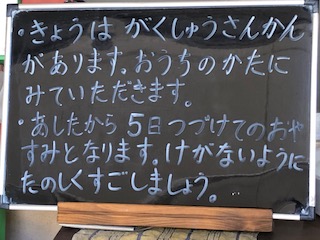 ・きょうは がくしゅうさんかん
があります。おうちのかたに
みていただきます。
・あしたから 5日つづけてのおや
すみとなります。けがないように
たのしくすごしましょう。